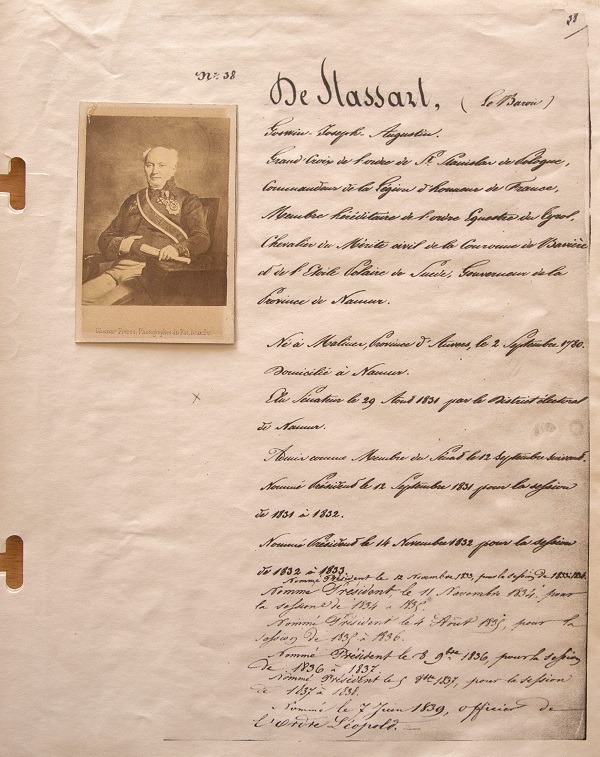 38
N° 38
De Stassart, (Le Baron)
Goswin-Joseph-Augustin.
Grand Croix de l'ordre de St. Stanislas de Pologne,
Commandeur de la légion d'honneur de France,
Membre héréditaire de l'ordre Equestre du Tyrol,
Chevalier du Mérite civil de la Couronne de Bavière
et de l'Etoile Polaire de Suède, Gouverneur de la
Province de Namur.
Né à Malines, Province d'Anvers, le 2 Septembre 1780.
Domicilié à Namur.
Elu Sénateur le 29 Août 1831 par le District électoral
de Namur.
Admis comme Membre du Sénat le 12 Septembre suivant.
Nommé Président le 12 Septembre 1831 pour la session
de 1831 à 1832.
Nommé Président le 14 Novembre 1832 pour la session
de 1832 à 1833.
Nommé Président le 12 Novembre 1833, pour la session de 1833-1834.
Nommé Président le 11 Novembre 1834, pour
la session de 1834 à 1835.
Nommé Président le 4 Août 1835, pour la
session de 1835 à 1836.
Nommé Président le 8 9bre 1836, pour la session
de 1836 à 1837.
Nommé Président le 5 8bre 1837, pour la session
de 1837 à 1838.
Nommé le 7 Juin 1839, officier de
l'Ordre Léopold.
Ghémar Frères, Photographes du Roi, Bruxelles